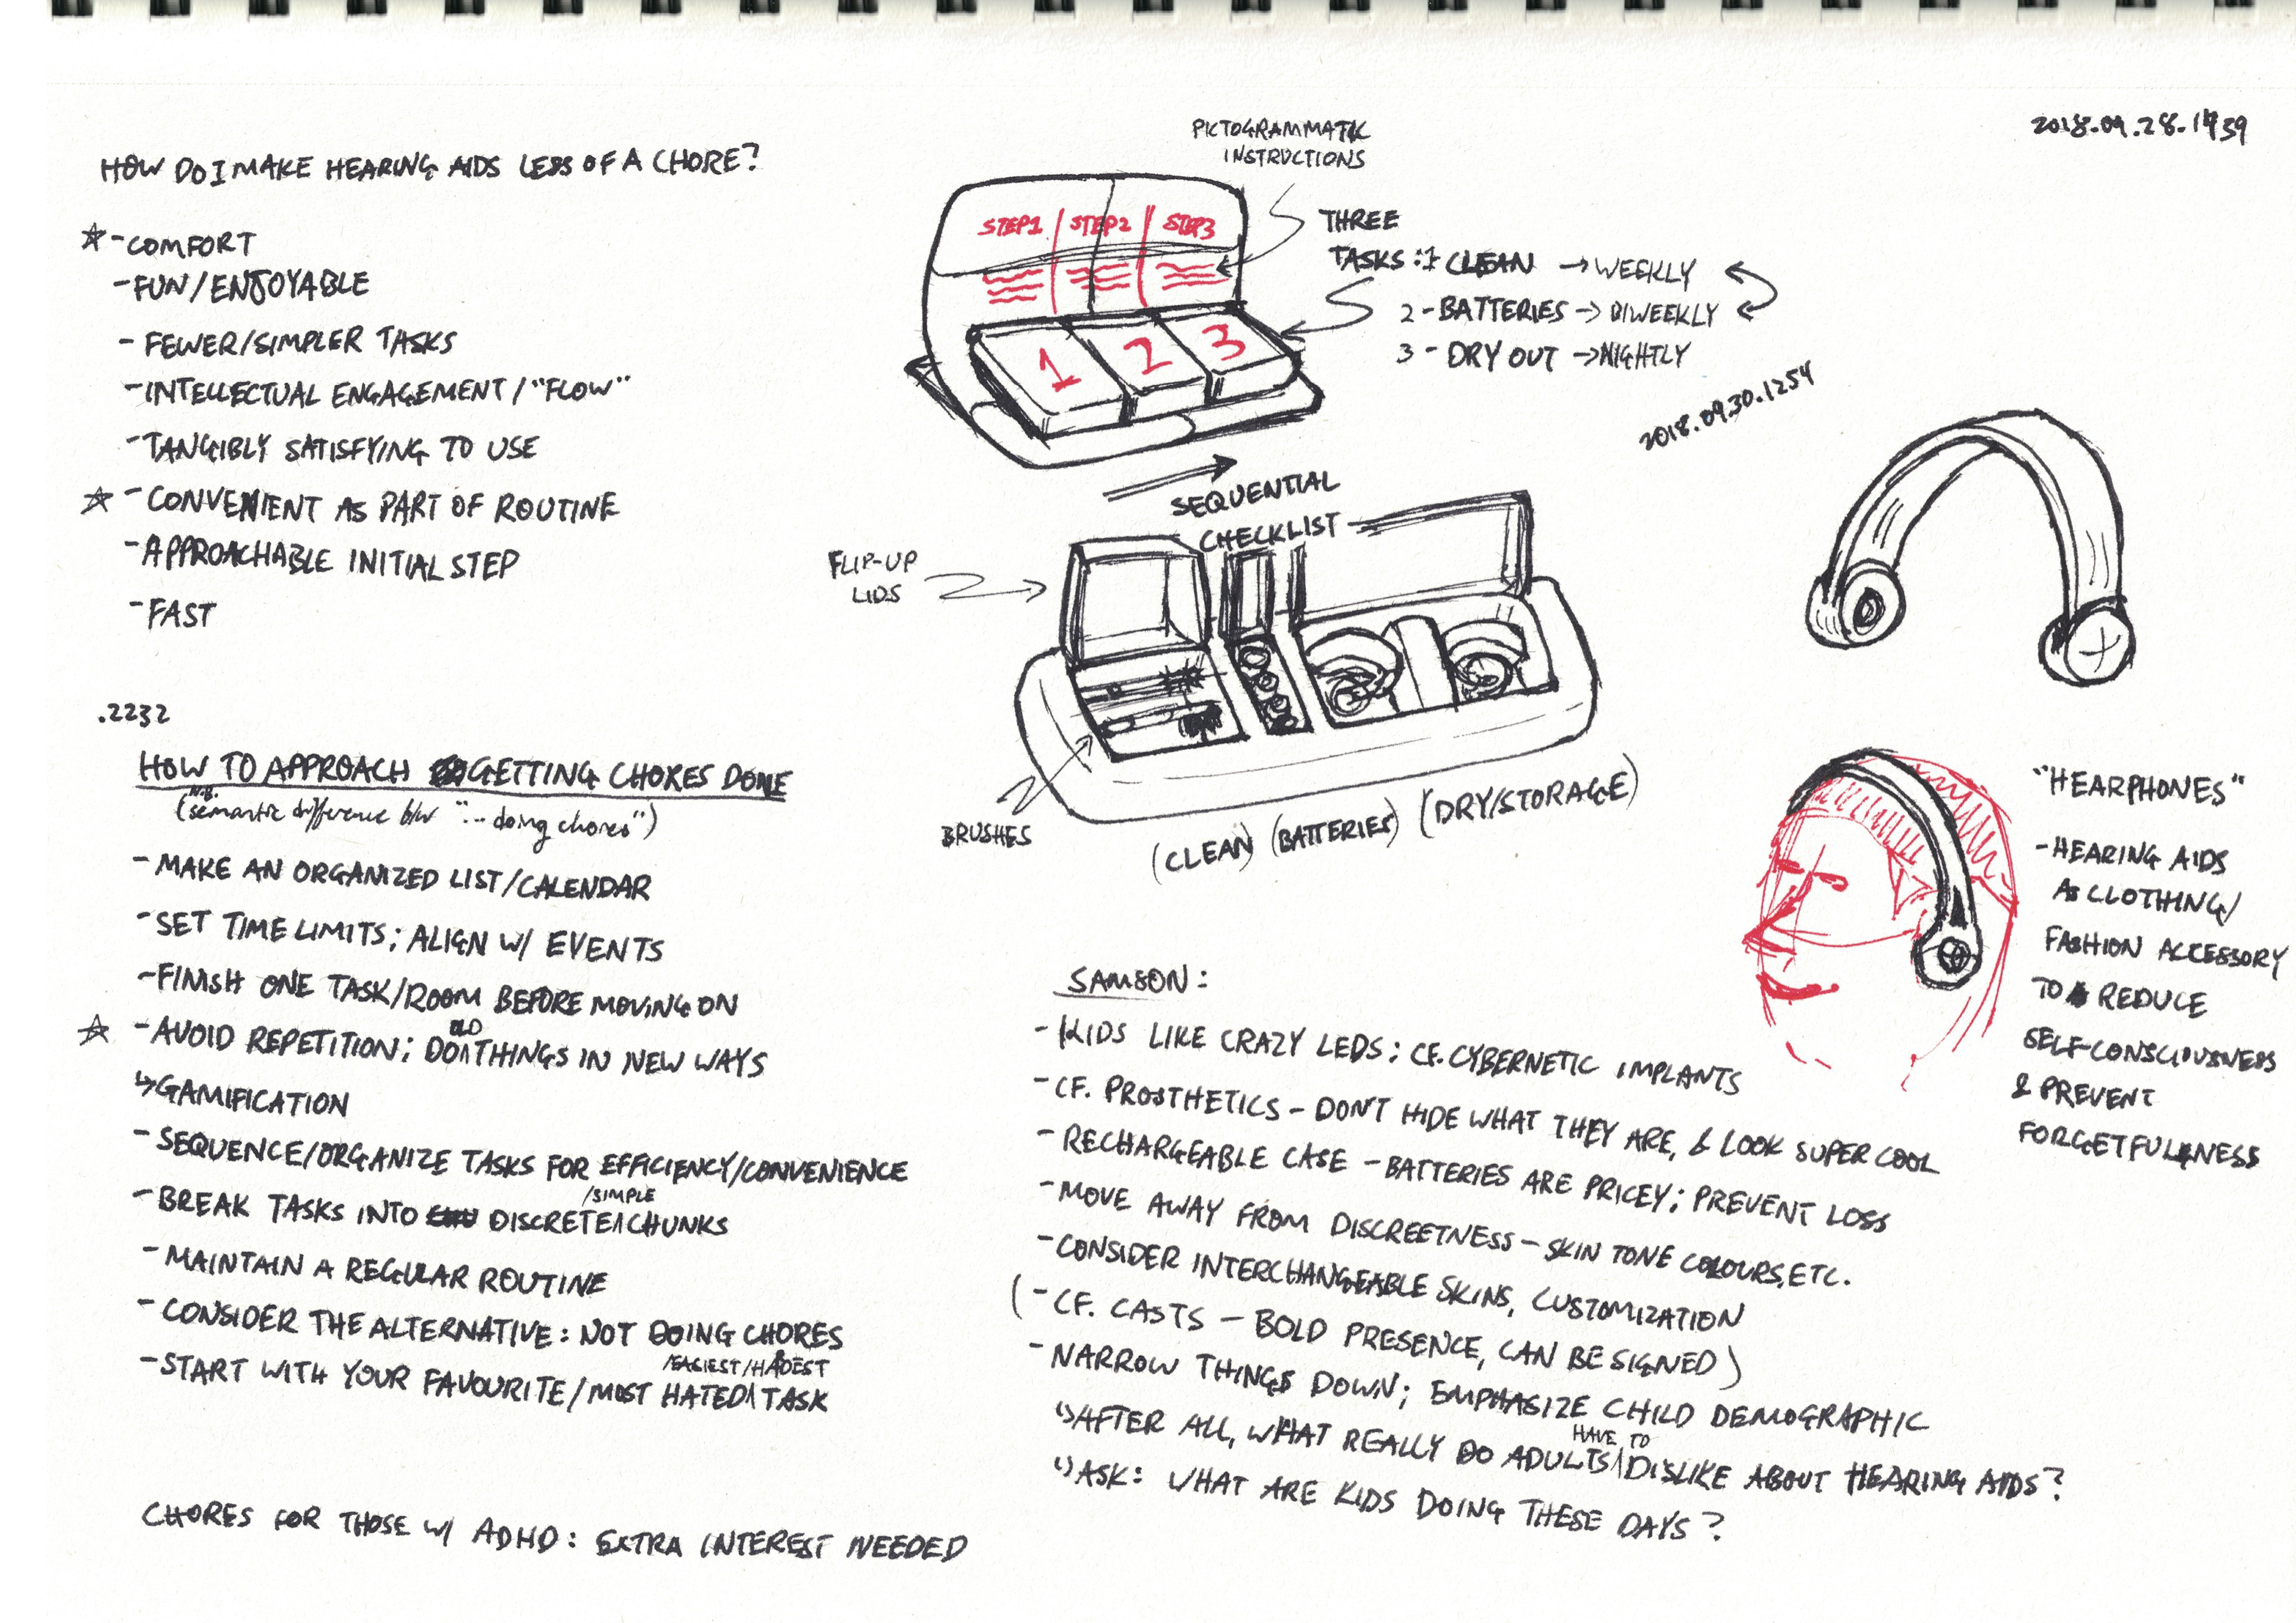 2018.09.28.1439
HOW DO I MAKE HEARING AIDS LESS OF A CHORE?
☆ - COMFORT
- FUN/ENJOYABLE
- FEWER/SIMPLER TASKS
- INTELLECTUAL ENGAGEMENT/"FLOW"
- TANGIBLY SATISFYING TO USE
☆ - CONVENIENT AS PART OF ROUTINE
- APPROACHABLE INITIAL STEP
- FAST
.2232
HOW TO APPROACH GETTING CHORES DONE
(N.B. semantic difference b/w "... doing chores")
- MAKE AN ORGANIZED LIST/CALENDAR
- SET TIME LIMITS; ALIGN W/ EVENTS
- FINISH ONE TASK/ROOM BEFORE MOVING ON
☆ - AVOID REPETITION; DO OLD THINGS IN NEW WAYS
↳ GAMIFICATION
- SEQUENCE/ORGANIZE TASKS FOR EFFICIENCY/CONVENIENCE
- BREAK TASKS INTO DISCRETE/SIMPLE CHUNKS
- MAINTAIN A REGULAR ROUTINE
- CONSIDER THE ALTERNATIVE: NOT DOING CHORES
- START WITH YOUR FAVOURITE/MOST HATED/EASIEST/HARDEST TASK
CHORES FOR THOSE W/ ADHD: EXTRA INTEREST NEEDED
PICTOGRAMMATIC
INSTRUCTIONS
STEP 1 STEP 2 STEP 3
1 2 3
THREE
TASKS: 1 CLEAN → WEEKLY
2 - BATTERIES → BIWEEKLY
3 - DRY OUT → NIGHTLY
2018.09.30.1254
SEQUENTIAL
CHECKLIST
FLIP-UP
LIDS
BRUSHES
(CLEAN) (BATTERIES) (DRY/STORAGE)
"HEARPHONES"
- HEARING AIDS
AS CLOTHING/
FASHION ACCESSORY
TO REDUCE
SELF-CONSCIOUSNESS
& PREVENT
FORGETFULNESS
SAMSON:
- KIDS LIKE CRAZY LEDS; CF. CYBERNETIC IMPLANTS
- CF. PROSTHETICS - DON'T HIDE WHAT THEY ARE, & LOOK SUPER COOL
- RECHARGEABLE CASE - BATTERIES ARE PRICEY; PREVENT LOSS
- MOVE AWAY FROM DISCREETNESS - SKIN TONE COLOURS, ETC.
- CONSIDER INTERCHANGEABLE SKINS, CUSTOMIZATION
(- CF. CASTS - BOLD PRESENCE, CAN BE SIGNED)
- NARROW THINGS DOWN; EMPHASIZE CHILD DEMOGRAPHIC
↳ AFTER ALL, WHAT REALLY DO ADULTS HAVE TO DISLIKE ABOUT HEARING AIDS?
↳ ASK: WHAT ARE KIDS DOING THESE DAYS?